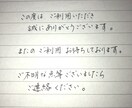 この度は、ご利用いただき
誠にありがとうございます。
またのご利用 お待ちしております。
ご不明な点等ございましたら
ご連絡ください。